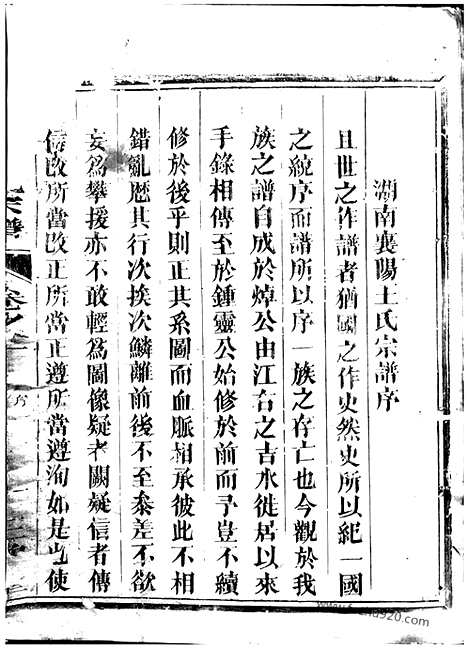 湖南襄陽王氏宗譜序
且世之作譜者猶國之作史然史所以紀一國
之統序而譜所以序一族之存亡也今觀於我
族之譜自成於焯公由江右之吉水徙居以來
手錄相傳至於鍾靈公始修於前而予豈不續
修於後乎則正其系圖而血脈相承彼此不相
錯亂歷其行次挨次鱗離前後不至叅差不欲
妄為攀援亦不敢輕為圖像疑者闕疑信者傳
信改所當改正所當正遵所當遵洵如是也使
宗譜